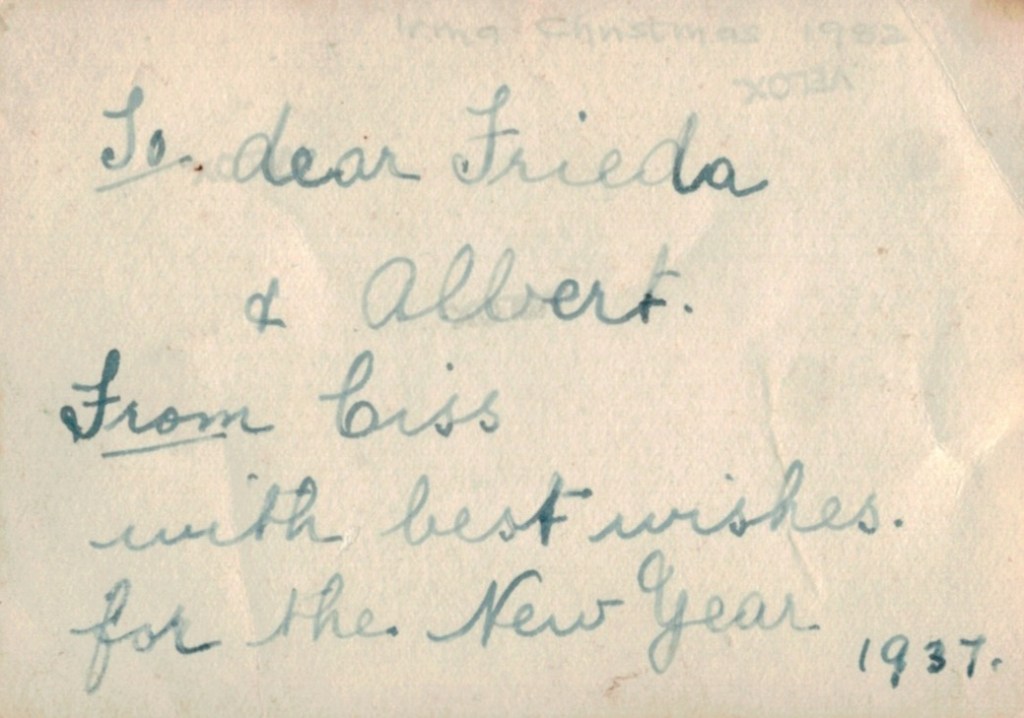 Irma Christmas 1982
VELOX
To. dear Frieda
& Albert.
From Ciss
with best wishes.
for the New Year
1937.